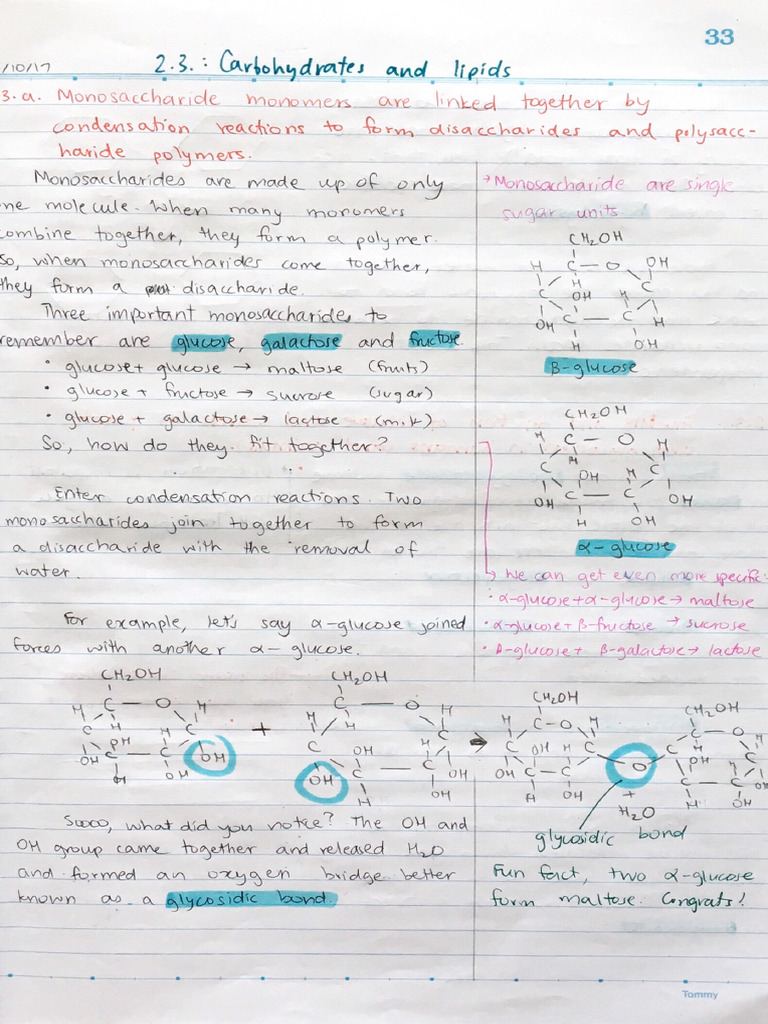 33
/10/17
2.3.: Carbohydrates and lipids
3.a. Monosaccharide monomers are linked together by
condensation reactions to form disaccharides and polysacc-
haride polymers.
Monosaccharides are made up of only
ne molecule. When many monomers
combine together, they form a polymer.
So, when monosaccharides come together,
they form a disaccharide.
Three important monosaccharides to
remember are glucose, galactose and fructose.
• glucose + glucose → maltose (fruits)
• glucose + fructose → sucrose (sugar)
• glucose + galactose → lactose (milk)
So, how do they fit together?
Enter condensation reactions. Two
monosaccharides join together to form
a disaccharide with the removal of
water.
For example, let's say α-glucose joined
forces with another α-glucose.
→ Monosaccharide are single
sugar units
CH₂OH
C — O OH
H C H
C H OH H C
OH C — C H
H OH
β-glucose
CH₂OH
H C — O H
C H OH H C
OH C — C OH
H OH
α-glucose
→ We can get even more specific:
• α-glucose + α-glucose → maltose
• α-glucose + β-fructose → sucrose
• β-glucose + β-galactose → lactose
CH₂OH
H C — O H
C H OH H C
OH C — C OH
H OH
+
CH₂OH
H C — O H
C H OH H C
OH C — C OH
H OH
→
CH₂OH
H C — O H
C OH H C
OH C — C O
H OH
CH₂OH
C — O H
C H OH H C
C — C OH
H OH
+
H₂O
glycosidic bond
Soooo, what did you notice? The OH and
OH group came together and released H₂O
and formed an oxygen bridge better
known as a glycosidic bond.
Fun fact, two α-glucose
form maltose. Congrats!
Tommy